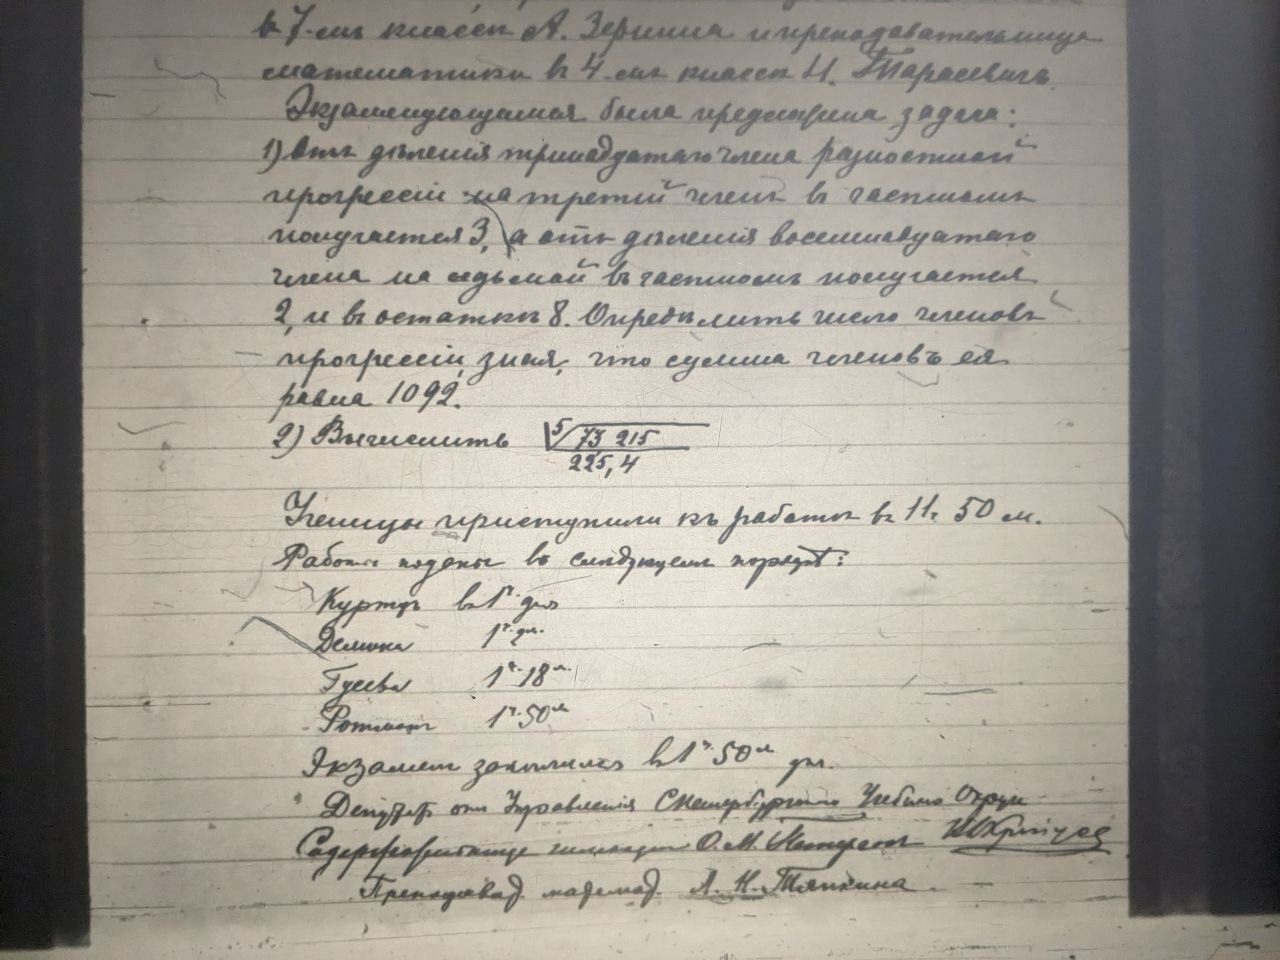 въ 7-мъ классѣ А. Зернина и преподавательница
математики въ 4-мъ классѣ Н. Тарасевичъ.
Экзаменующимся была предложена задача:
1) Отъ дѣленія тринадцатаго члена разностной
прогрессіи на третій членъ въ частномъ
получается 3, а отъ дѣленія восемнадцатаго
члена на седьмой въ частномъ получается
2, и въ остаткѣ 8. Опредѣлить число членовъ
прогрессіи, зная, что сумма членовъ ея
равна 1092.
2) Вычислить ⁵√73 215
225,4
Ученицы приступили къ работѣ въ 11ч. 50 м.
Работы поданы въ слѣдующемъ порядкѣ:
въ 1ч. дня
Демина 1ч. дн.
Гусева 1ч. 18м.
1ч. 50м
Экзаменъ закончился въ 1ч. 50м дн.
Депутатъ отъ Управленія СПетербургскаго Учебнаго Округа
Содержательница гимназіи О. М.
Преподават. математ. А. Н. Тяпкина.